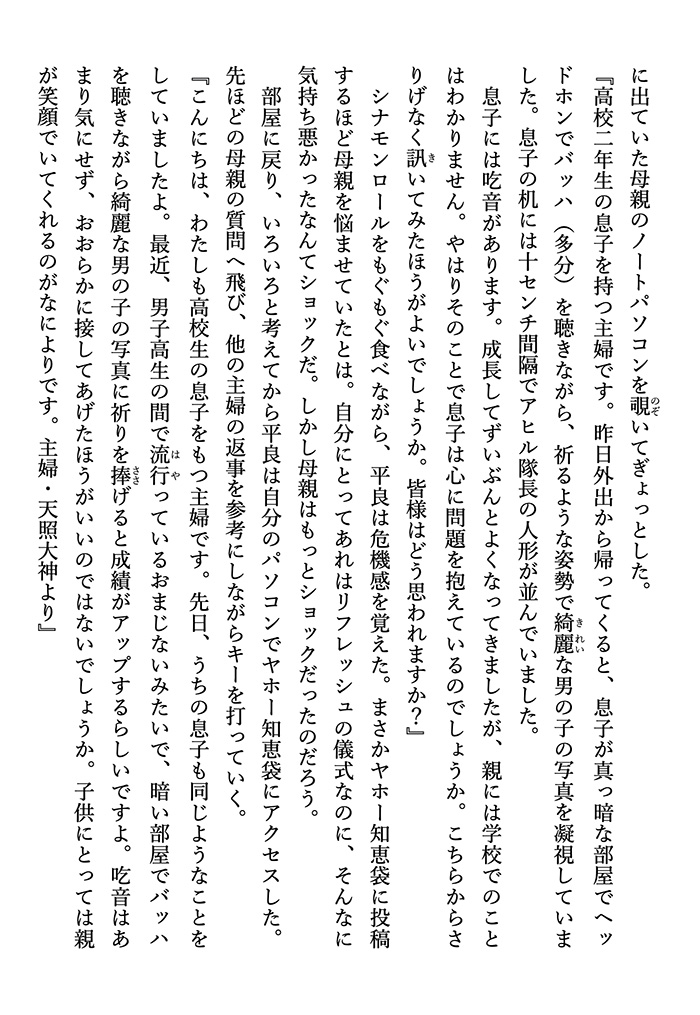 に出ていた母親のノートパソコンを覗いてぎょっとした。
『高校二年生の息子を持つ主婦です。昨日外出から帰ってくると、息子が真っ暗な部屋でヘッ
ドホンでバッハ（多分）を聴きながら、祈るような姿勢で綺麗な男の子の写真を凝視していま
した。息子の机には十センチ間隔でアヒル隊長の人形が並んでいました。
息子には吃音があります。成長してずいぶんとよくなってきましたが、親には学校でのこと
はわかりません。やはりそのことで息子は心に問題を抱えているのでしょうか。こちらからさ
りげなく訊いてみたほうがよいでしょうか。皆様はどう思われますか？』
シナモンロールをもぐもぐ食べながら、平良は危機感を覚えた。まさかヤホー知恵袋に投稿
するほど母親を悩ませていたとは。自分にとってあれはリフレッシュの儀式なのに、そんなに
気持ち悪かったなんてショックだ。しかし母親はもっとショックだったのだろう。
部屋に戻り、いろいろと考えてから平良は自分のパソコンでヤホー知恵袋にアクセスした。
先ほどの母親の質問へ飛び、他の主婦の返事を参考にしながらキーを打っていく。
『こんにちは、わたしも高校生の息子をもつ主婦です。先日、うちの息子も同じようなことを
していましたよ。最近、男子高生の間で流行っているおまじないみたいで、暗い部屋でバッハ
を聴きながら綺麗な男の子の写真に祈りを捧げると成績がアップするらしいですよ。吃音はあ
まり気にせず、おおらかに接してあげたほうがいいのではないでしょうか。子供にとっては親
が笑顔でいてくれるのがなによりです。主婦・天照大神より』